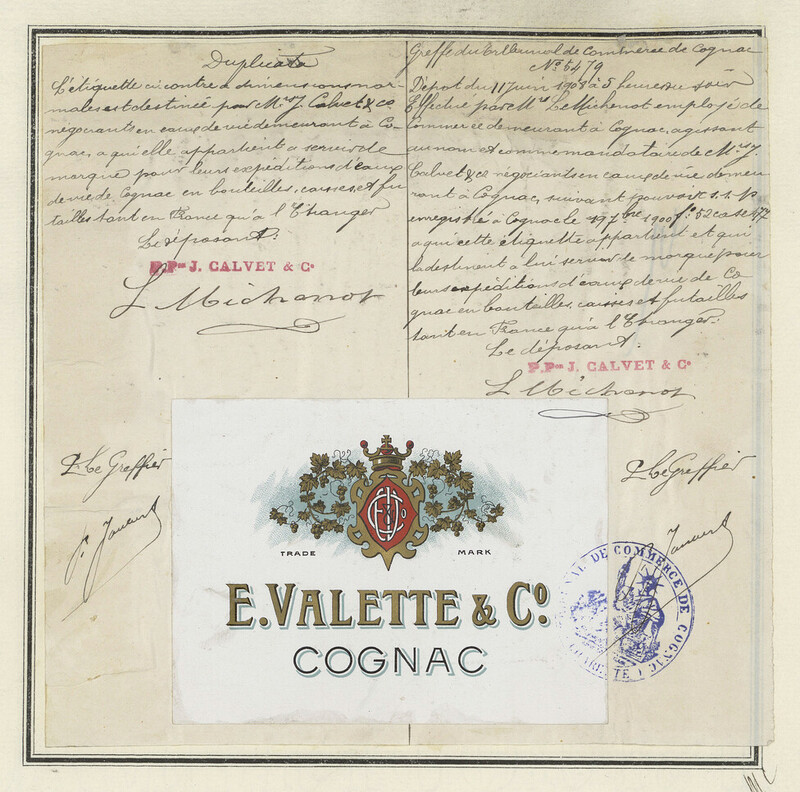 Duplicata
L'étiquette ci contre à dimensions nor-
males est destinée par Mrs J. Calvet & Co
négociants en eaux de vie demeurant à Co-
gnac, a qu'elle appartient a servir de
marque pour leurs expéditions d'eaux
de vie de Cognac en bouteilles, caisses, et fu
tailles tant en France qu'à l'Etranger
Le déposant:
P. Pon J. CALVET & Co
L Michenot
Greffe du Tribunal de Commerce de Cognac
No 5479
Dépot du 11 Juin 1908 à 5 heures du soir
Effectué par Mr Le Michenot employé de
Commerce demeurant à Cognac, agissant
au nom et comme mandataire de Mrs J.
Calvet & Co négociants en eaux de vie demeu
rant à Cognac, suivant pouvoir s.s.p
enregistré à Cognac le 19 7bre 1900 fo 52 case 472
a qui cette étiquette appartient et qui
la destinent à lui servir de marque pour
leurs expéditions d'eaux de vie de Co
gnac en bouteilles, caisses et futailles
tant en France qu'à l'Etranger:
Le déposant.
P. Pon J. CALVET & Co
L Michenot
Le Greffier
Le Greffier
TRADE MARK
E. VALETTE & Co.
COGNAC
TRIBUNAL DE COMMERCE DE COGNAC
(CHARENTE)